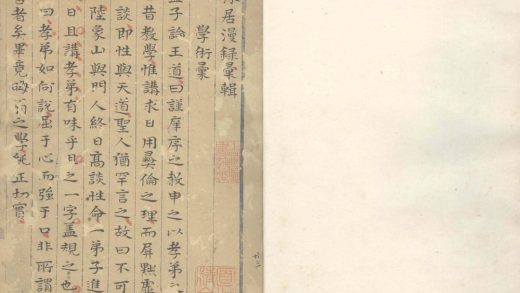 居漫録彙輯
學術彙
孟子論王道曰謹庠序之教申之以孝弟
昔教學惟講求日用彝倫之理而屏黜虛
談即性與天道聖人猶罕言之故曰不可
陸象山與門人終日高談性命一弟子進
曰且講孝弟有味乎曰之一字盖規之也
曰孝弟如何說屈于心而強于口非所謂
者矣畢竟 翁之學 正切實